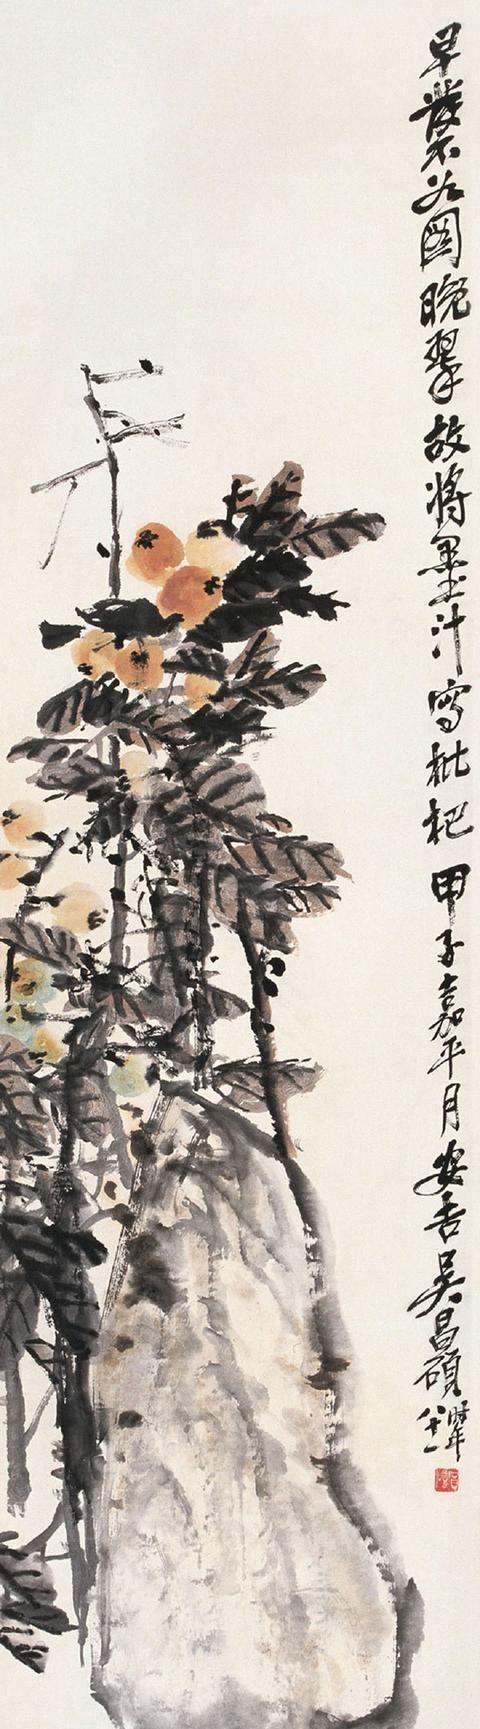 早不園晚翠故將墨汁寫枇杷甲子嘉平月安吉吳昌碩時年八十一